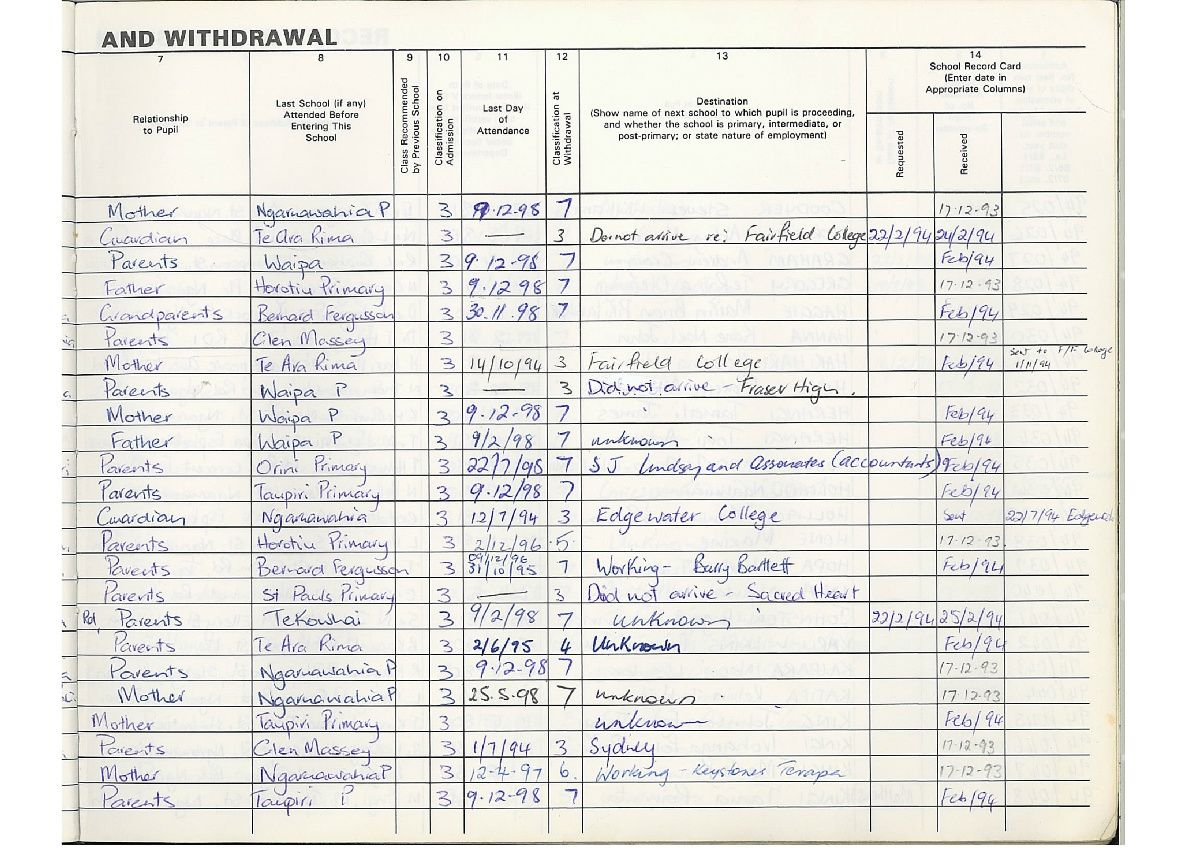 AND WITHDRAWAL
7 8 9 10 11 12 13 14
Relationship to Pupil
Last School (if any) Attended Before Entering This School
Class Recommended by Previous School
Classification on Admission
Last Day of Attendance
Classification at Withdrawal
Destination
(Show name of next school to which pupil is proceeding, and whether the school is primary, intermediate, or post-primary; or state nature of employment)
School Record Card (Enter date in Appropriate Columns)
Requested
Received
Mother Ngaruawahia P 3 9.12.98 7 17.12.93
Guardian Te Ara Rima 3 — 3 Do not arrive re: Fairfield College 22/2/94 24/2/94
Parents Waipa 3 9.12.98 7 Feb/94
Father Horotiu Primary 3 9.12.98 7 17.12.93
Grandparents Bernard Fergusson 3 30.11.98 7 Feb/94
Parents Glen Massey 3 17.12.93
Mother Te Ara Rima 3 14/10/94 3 Fairfield College Feb/94 Sent to F/F College 1/11/94
Parents Waipa P 3 — 3 Did not arrive - Fraser High.
Mother Waipa P 3 9.12.98 7 Feb/94
Father Waipa P 3 9/2/98 7 unknown Feb/94
Parents Orini Primary 3 22/7/98 7 S J Lindsay and Assonates (accountants) Feb/94
Parents Taupiri Primary 3 9.12/98 7 Feb/94
Guardian Ngaruawahia 3 12/7/94 3 Edgewater College Sent 22/7/94
Parents Horotiu Primary 3 2/12/96 5. 17.12.93
Parents Bernard Fergusson 3 09/12/96 31/10/95 7 Working - Barry Bartlett Feb/94
Parents St Pauls Primary 3 — 3 Did not arrive - Sacred Heart
Parents TeKowhai 3 9/2/98 7 unknown 22/2/94 25/2/94
Parents Te Ara Rima 3 2/6/95 4 UnKnown Feb/94
Parents Ngaruawahia P 3 9.12.98 7 17.12.93
Mother Ngaruawahia P 3 25.5.98 7 unknown 17.12.93
Mother Taupiri Primary 3 unknown Feb/94
Parents Glen Massey 3 1/7/94 3 Sydney 17.12.93
Mother Ngaruawahia P 3 12.4.97 6. Working - Keystones Terapa 17.12.93
Parents Taupiri P 3 9.12.98 7 Feb/94